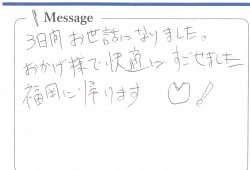 Message
3日間お世話になりました。
おかげ様で快適にすごせました
福岡に帰ります !